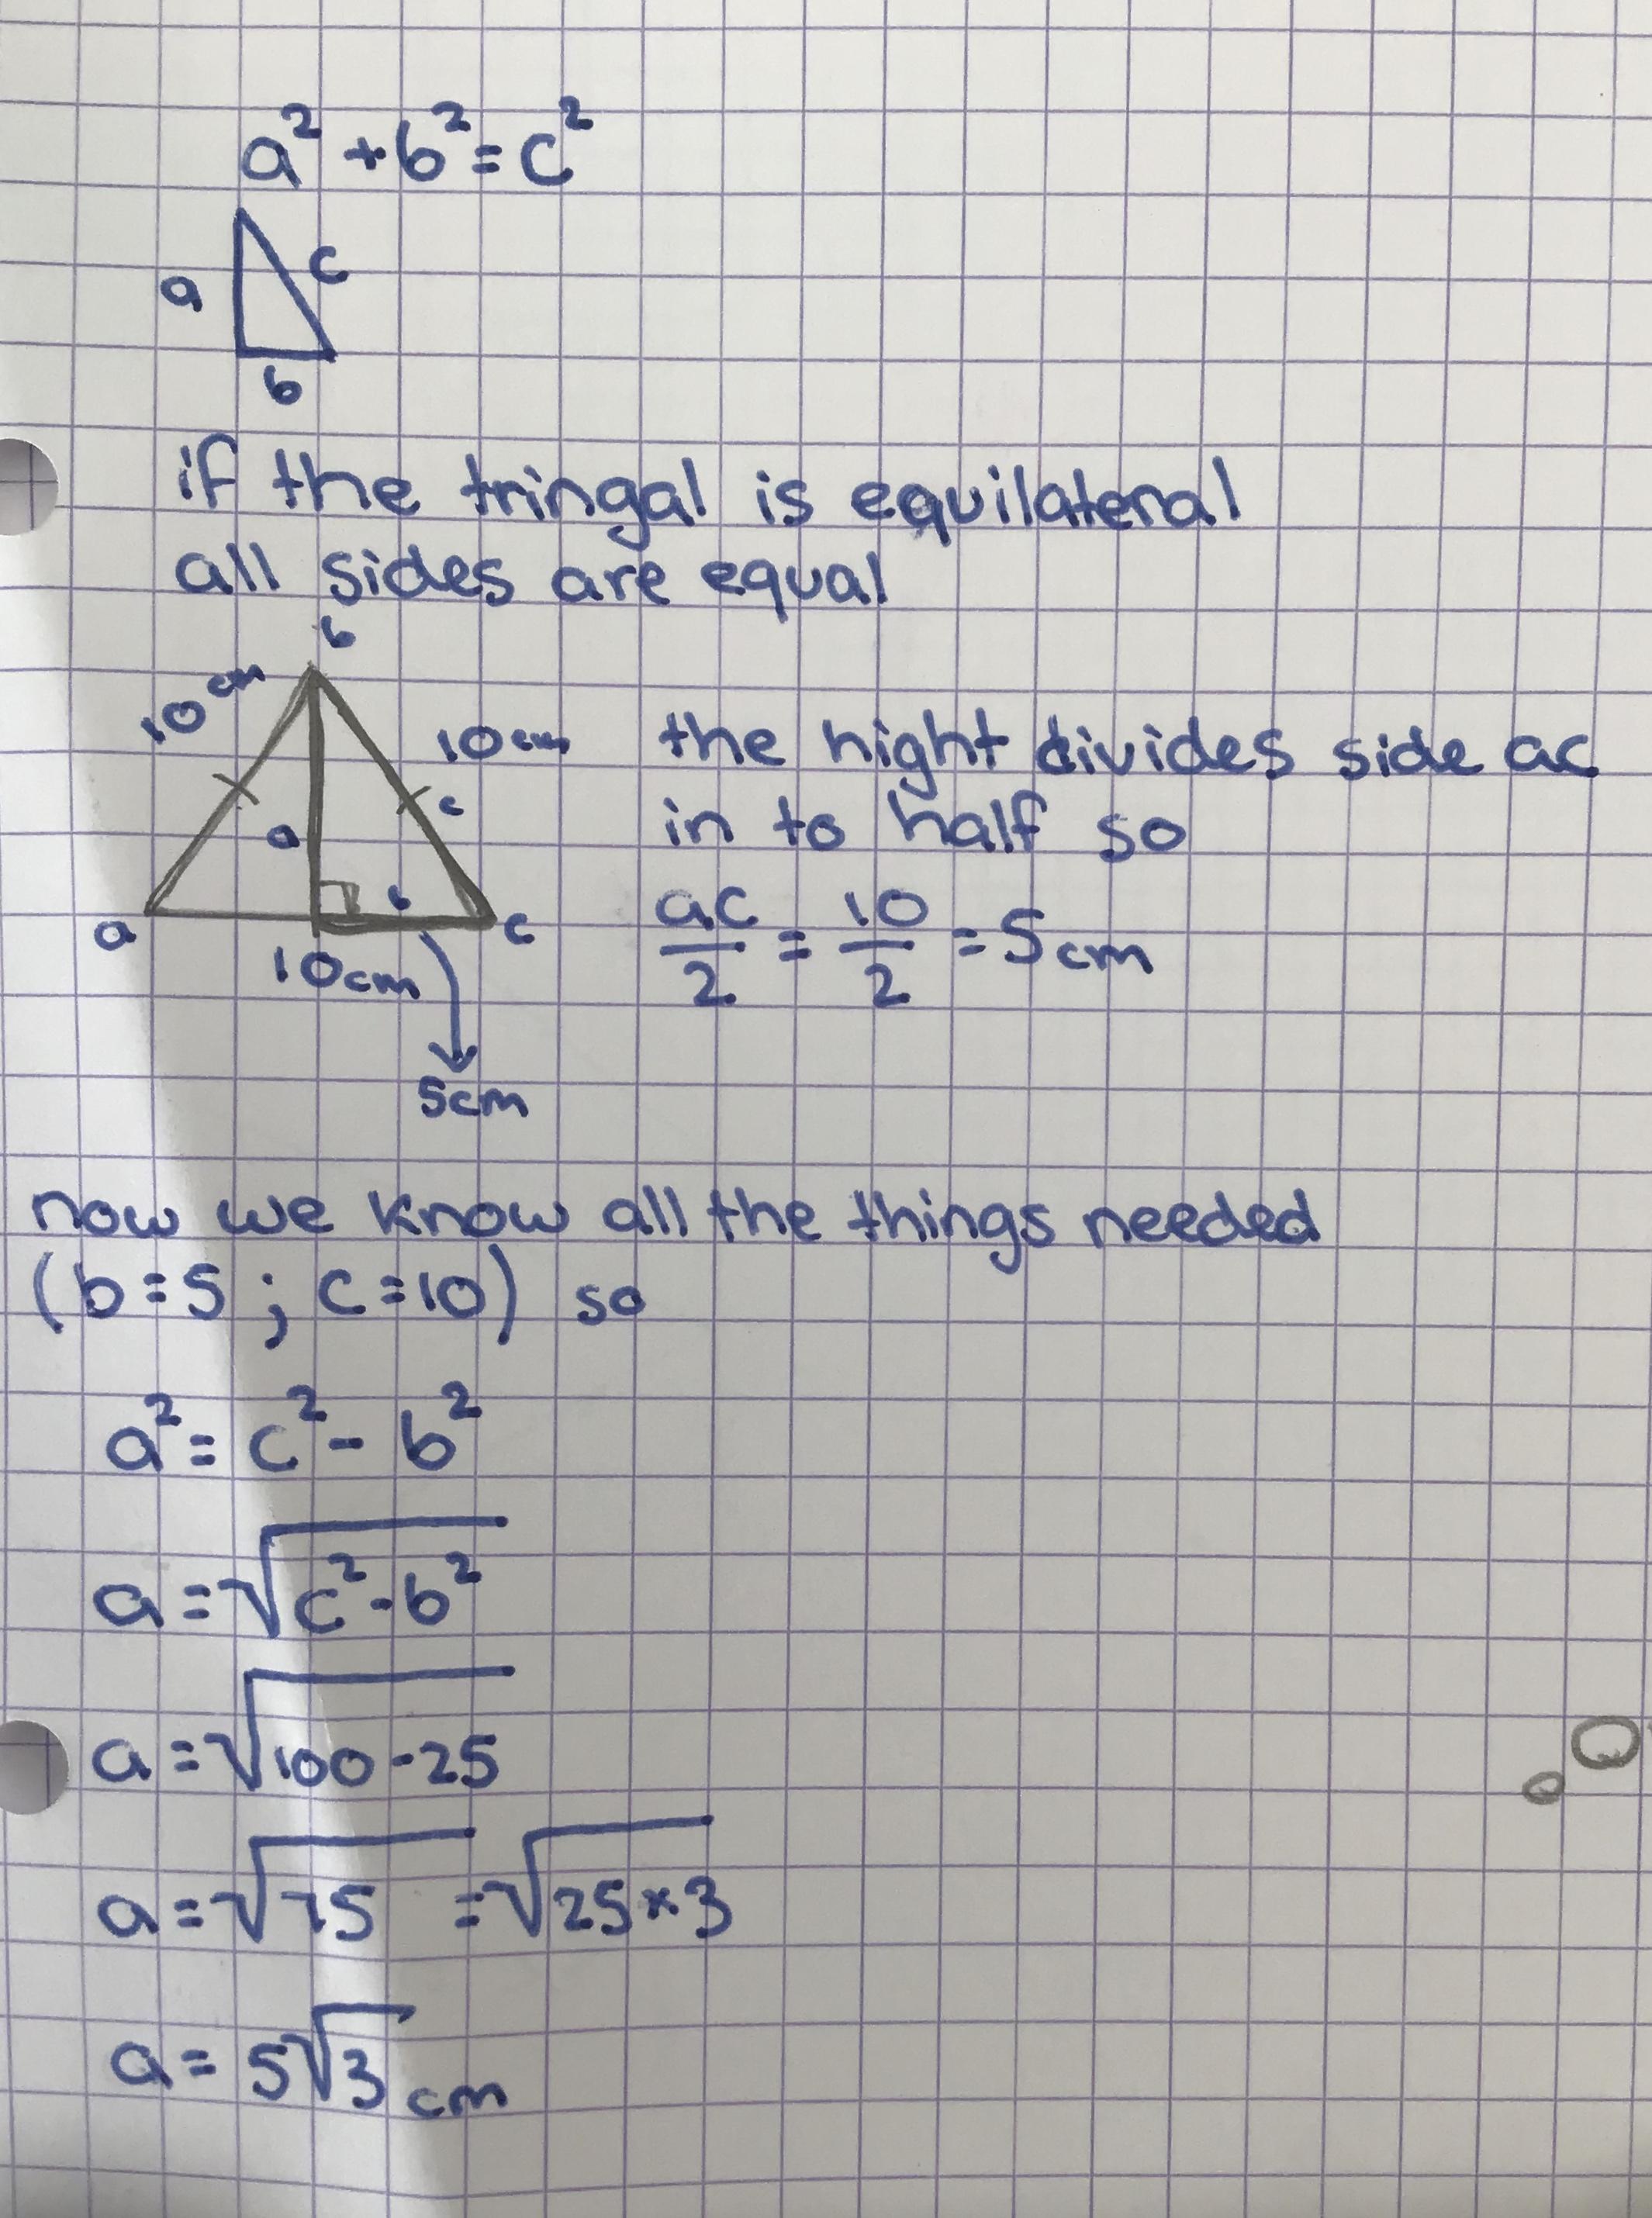 a² + b² = c²
a
c
b
if the tringal is equilateral
all sides are equal
b
10 cm
10 cm
c
a
b
a
c
10 cm
5cm
the hight divides side ac
in to half so
ac/2 = 10/2 = 5 cm
now we know all the things needed
(b=5 ; c=10) so
a² = c² - b²
a = √(c² - b²)
a = √(100 - 25)
a = √75 = √(25 × 3)
a = 5√3 cm